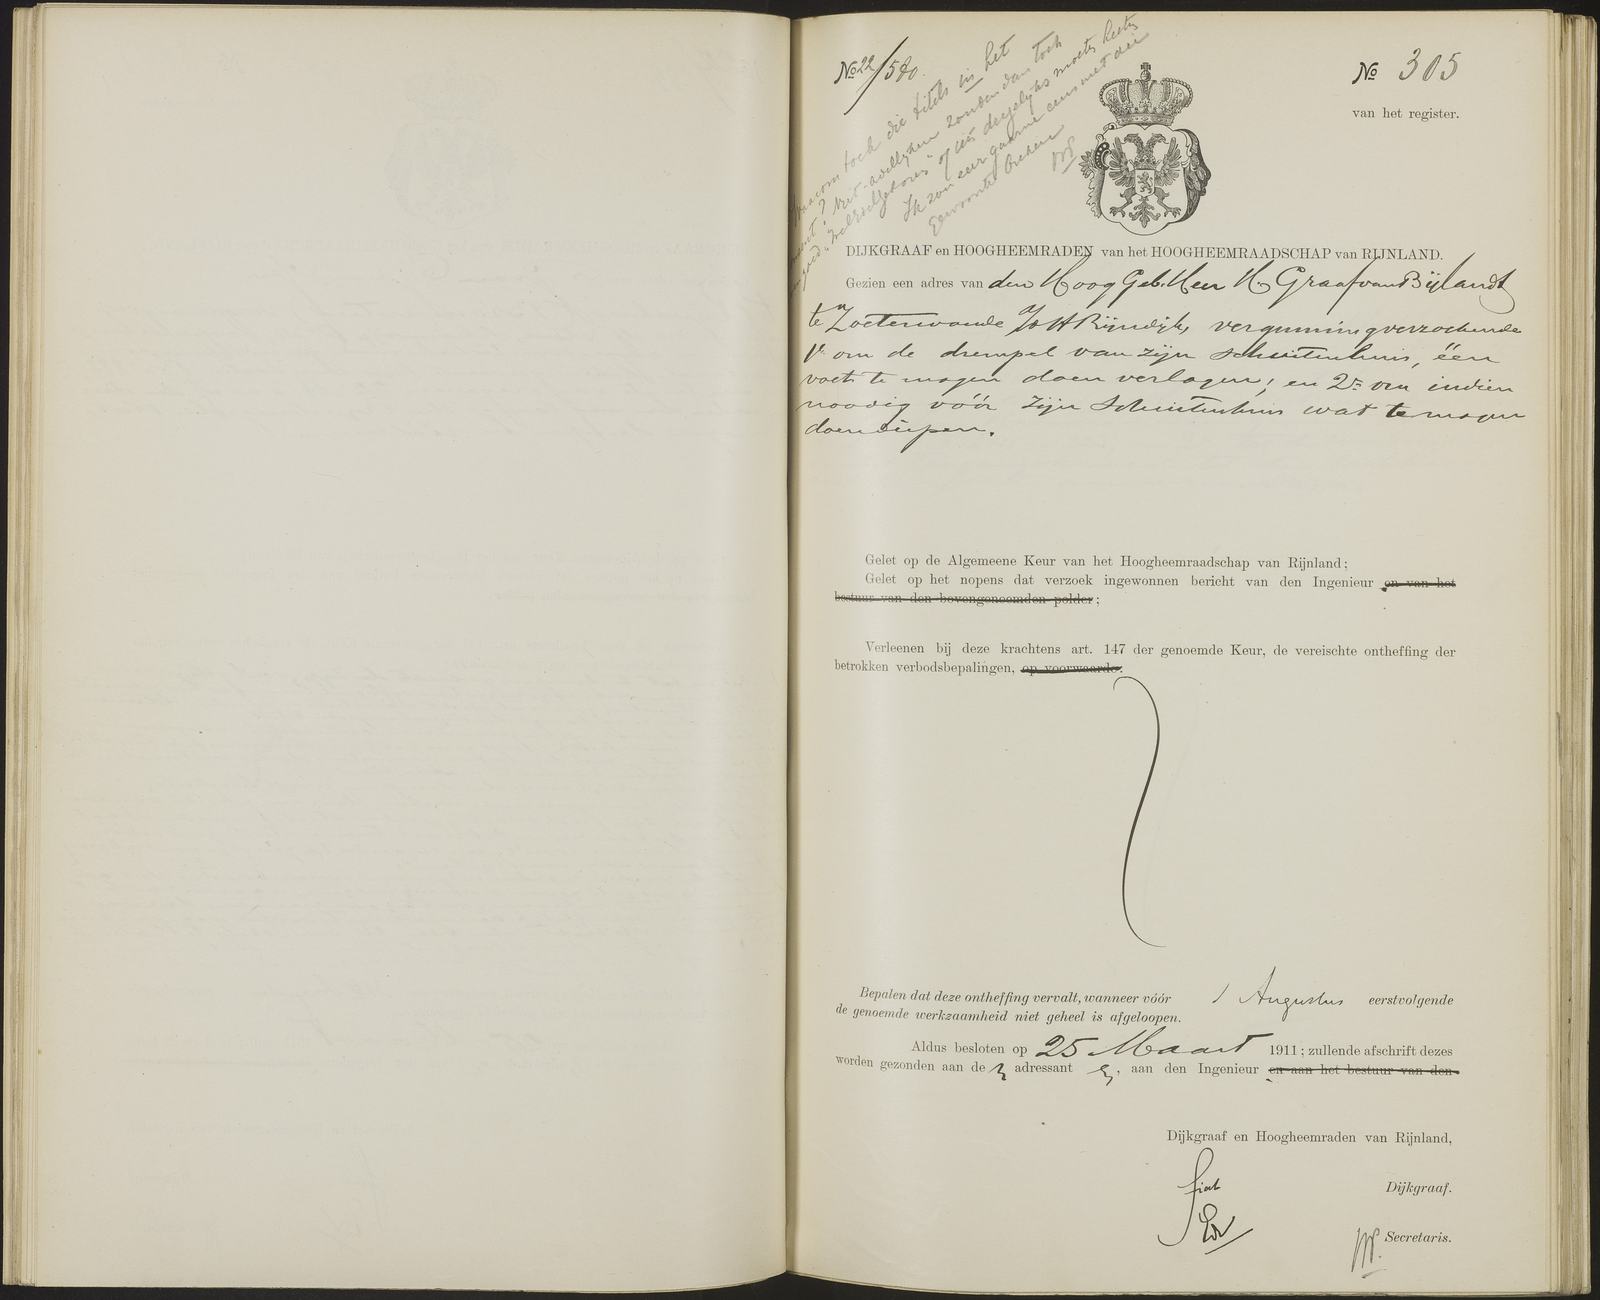 No 22/580.
No 305
van het register.
Waarom toch die titels in het
? Niet-adellijken zouden dan toch
goed "Weledelgeboren" of iets dergelijks moeten heeten
Ik zou zeer gaarne eens met die
gewoonte breken
DIJKGRAAF en HOOGHEEMRADEN van het HOOGHEEMRAADSCHAP van RIJNLAND.
Gezien een adres van den Hoog Geb. Heer Graaf van Bijlandt
te Zoeterwoude Rijndijk, vergunning verzoekende
1e om de drempel van zijn schuitenhuis, één
voet te mogen doen verlagen; en 2e om indien
noodig vóór zijn Schuitenhuis wat te mogen
doen diepen.
Gelet op de Algemeene Keur van het Hoogheemraadschap van Rijnland;
Gelet op het nopens dat verzoek ingewonnen bericht van den Ingenieur en van het
bestuur van den bovengenoemden polder;
Verleenen bij deze krachtens art. 147 der genoemde Keur, de vereischte ontheffing der
betrokken verbodsbepalingen, op voorwaarde.
Bepalen dat deze ontheffing vervalt, wanneer vóór 1 Augustus eerstvolgende
de genoemde werkzaamheid niet geheel is afgeloopen.
Aldus besloten op 25 Maart 1911; zullende afschrift dezes
worden gezonden aan de adressant, aan den Ingenieur en aan het bestuur van den
Dijkgraaf en Hoogheemraden van Rijnland,
fiat
Dijkgraaf.
Secretaris.